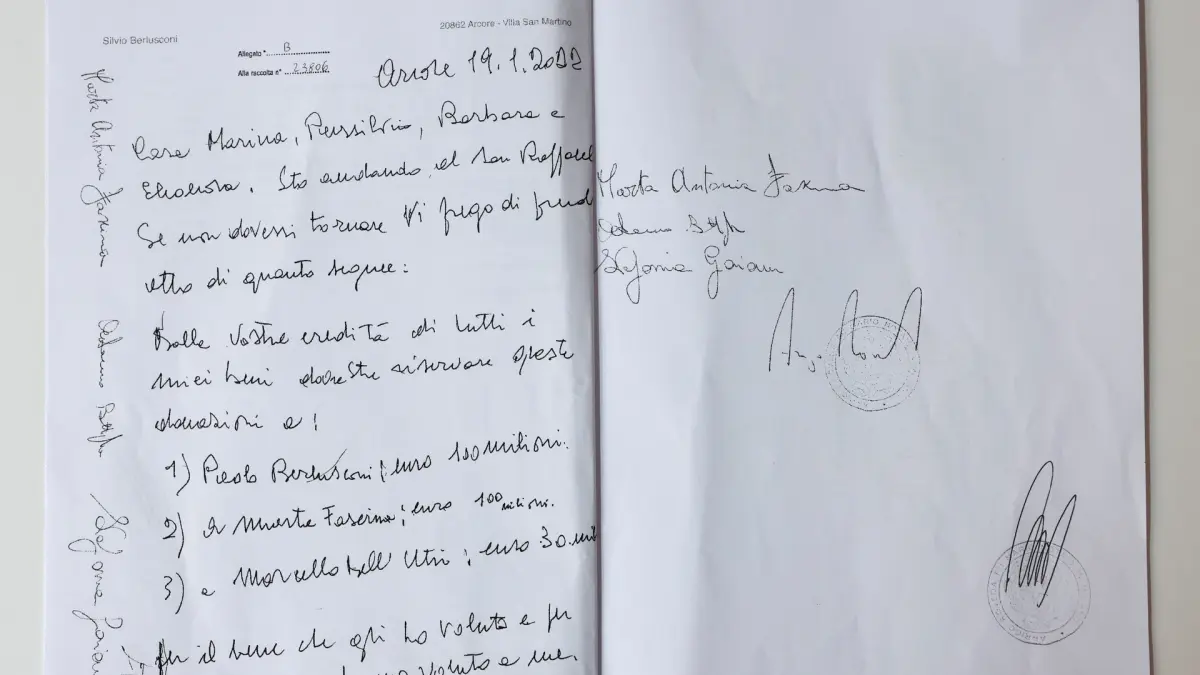 Silvio Berlusconi
20862 Arcore - Villa San Martino
Allegato "B
Alla raccolta n° 23806
Arcore 19.1.2022
Cara Marina, Piersilvio, Barbara e
Eleonora, Sto andando al San Raffael
Se non dovessi tornare Vi prego di prend
atto di quanto segue:
Dalla vostra eredità di tutti i
miei beni dovreste riservare queste
donazioni a:
1) Paolo Berlusconi; euro 100 milioni.
2) a Marta Fascina; euro 100 milioni.
3) a Marcello Dell'Utri; euro 30 mil
Per il bene che gli ho voluto e per
voluto a me.
Marta Antonia Fascina
Stefania
Marta Antonia Fascina
Stefania